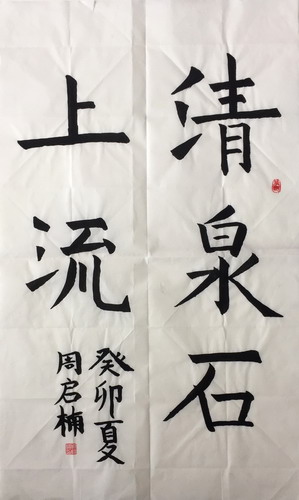 清泉石
上流
癸卯夏
周启楠